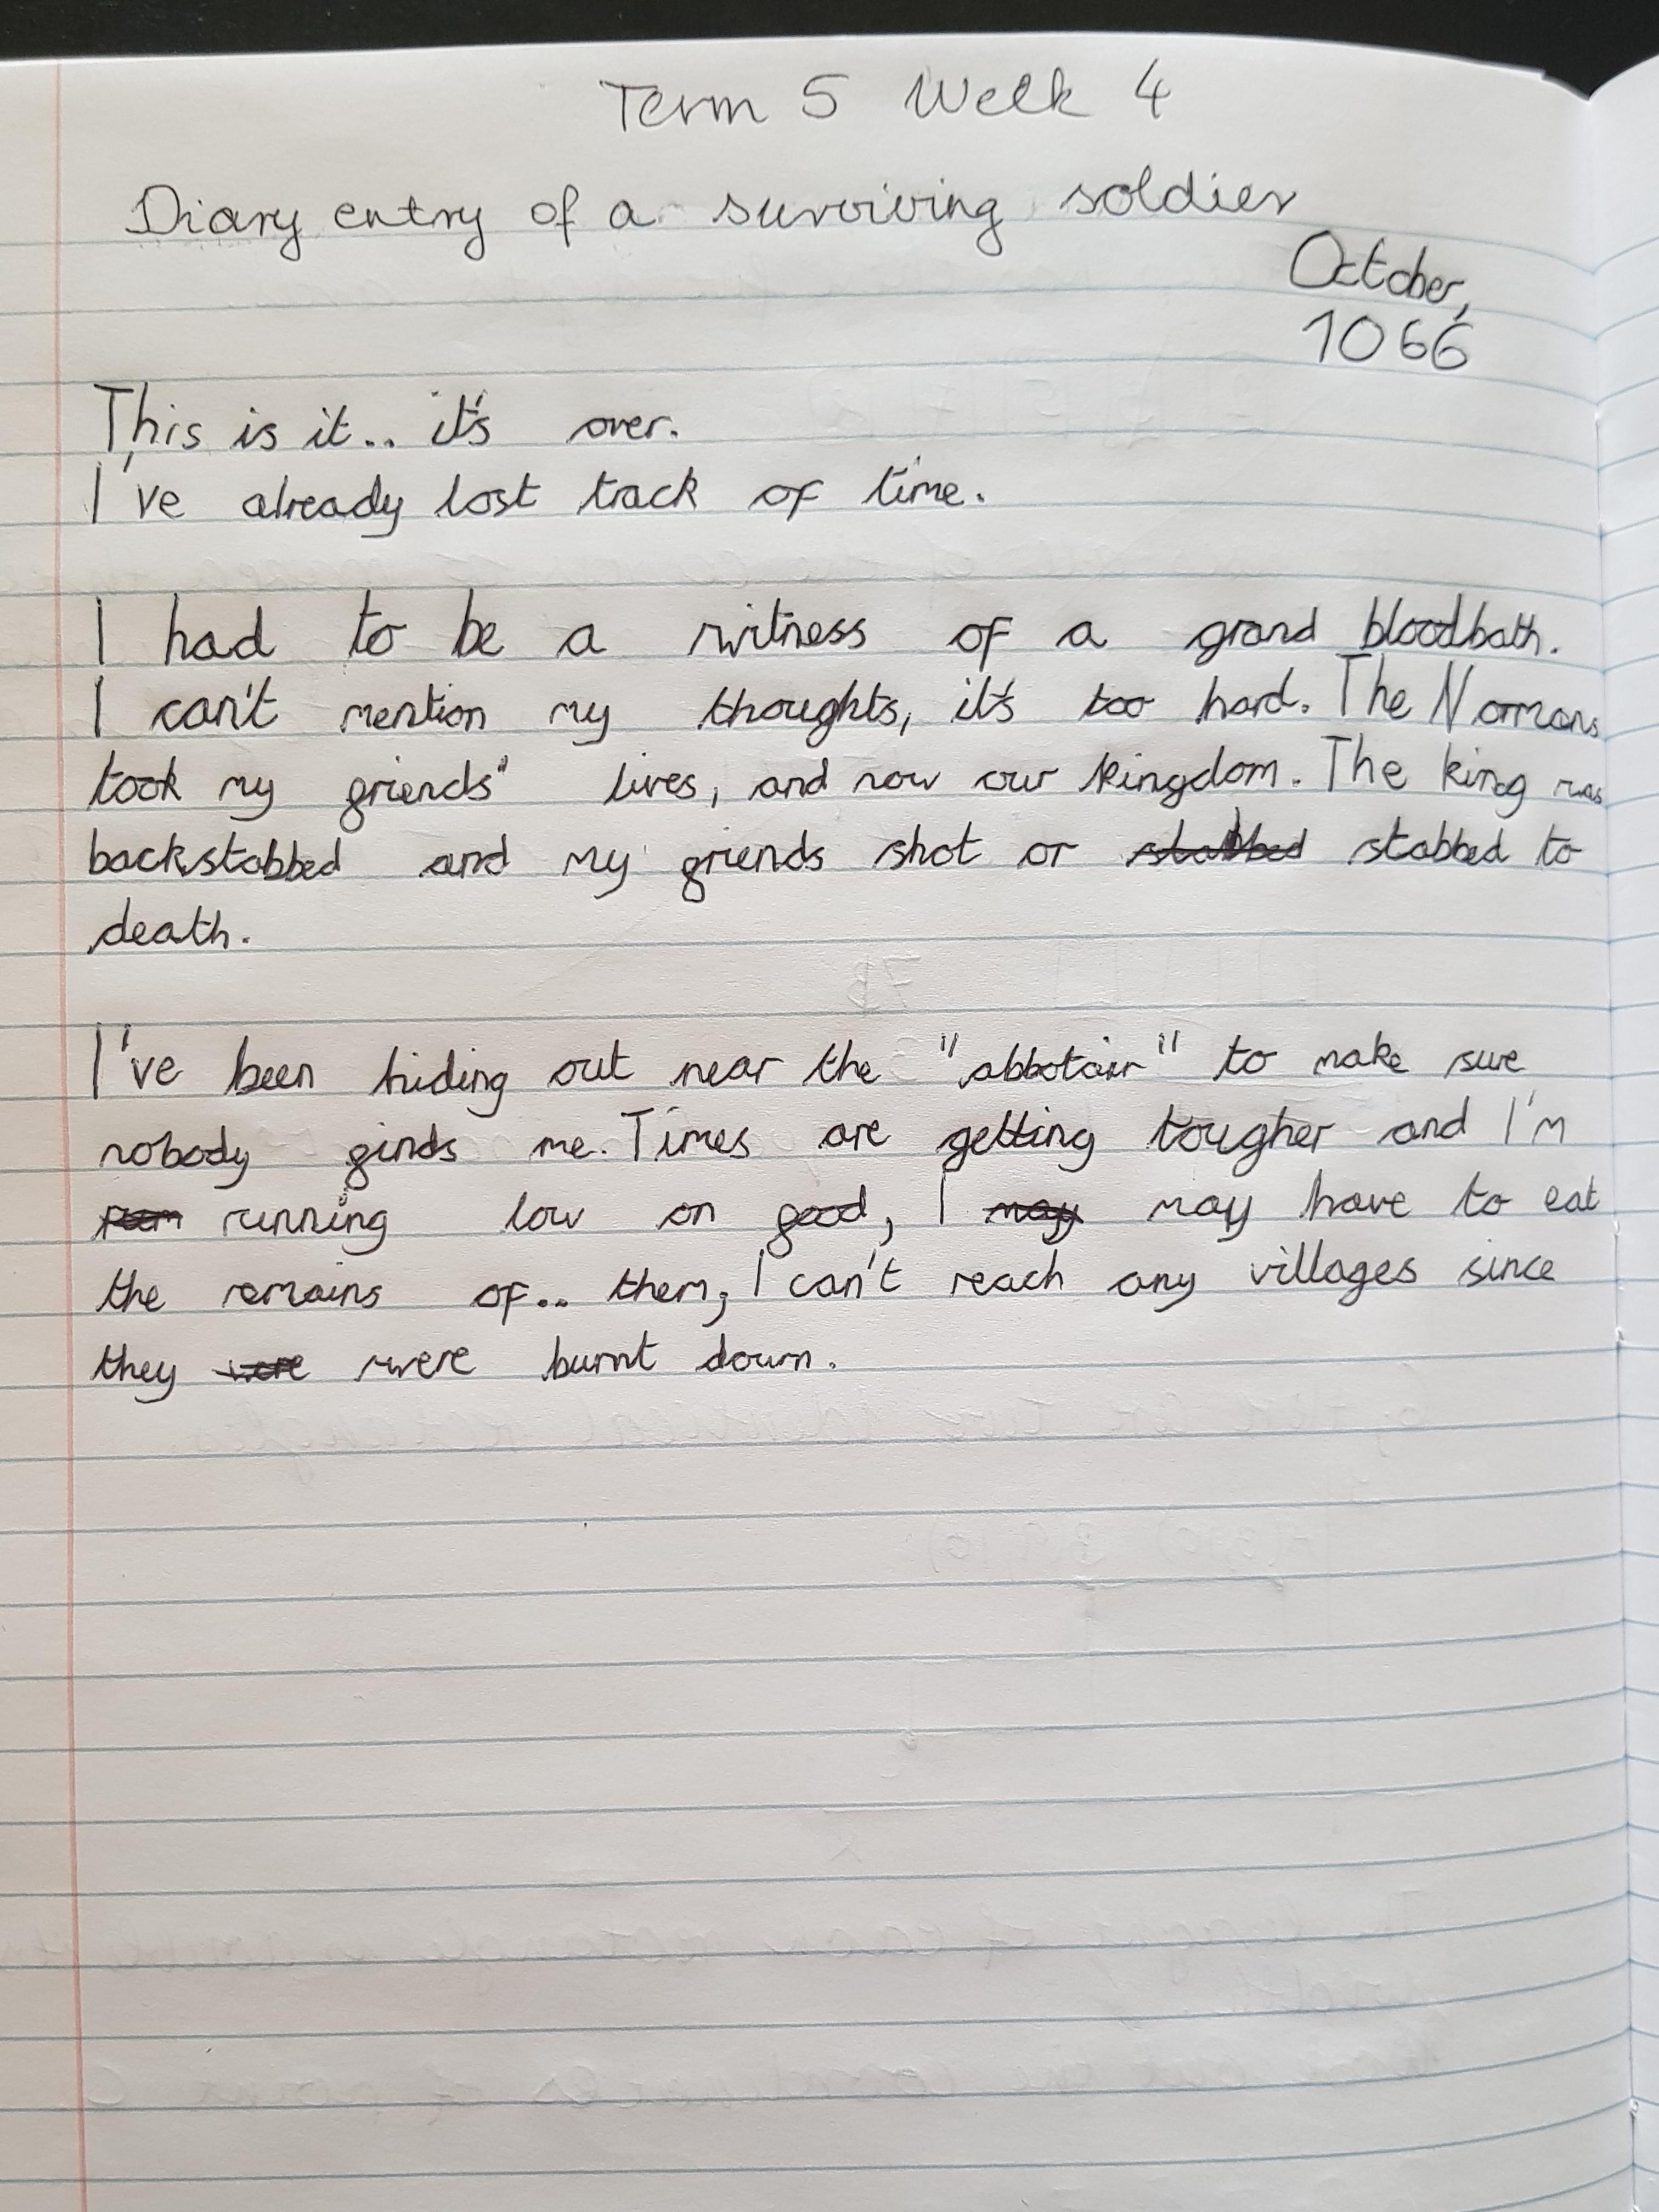 Term 5 Week 4
Diary entry of a surviving soldier
October,
1066
This is it.. it's over.
I've already lost track of time.
I had to be a witness of a grand bloodbath.
I can't mention my thoughts, it's too hard. The Normans
took my friends' lives, and now our kingdom. The king was
backstabbed and my friends shot or stabbed stabbed to
death.
I've been hiding out near the "abbotair" to make sure
nobody finds me. Times are getting tougher and I'm
running low on food, I may may have to eat
the remains of.. them; I can't reach any villages since
they were were burnt down.